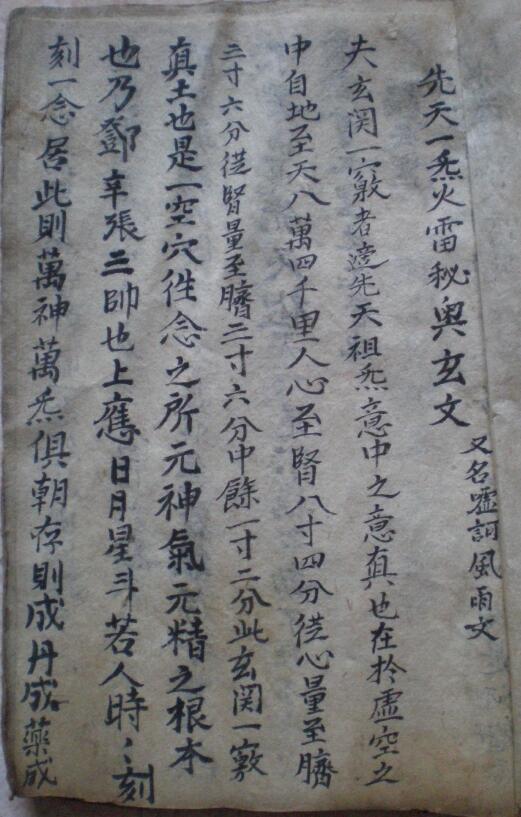 先天一炁火雷秘奥玄文
又名嘘訶風雨文
夫玄関一竅者遶先天祖炁意中之意真也在扵虚空之
中自地至天八萬四千里人心至腎八寸四分従心量至臍
三寸六分従腎量至臍三寸六分中餘一寸二分此玄関一竅
真土也是一空穴性念之所元神氣元精之根本
也乃鄧辛張三帥也上應日月星斗若人時〻刻
刻一念居此則萬神萬炁俱朝存則成丹成藥成